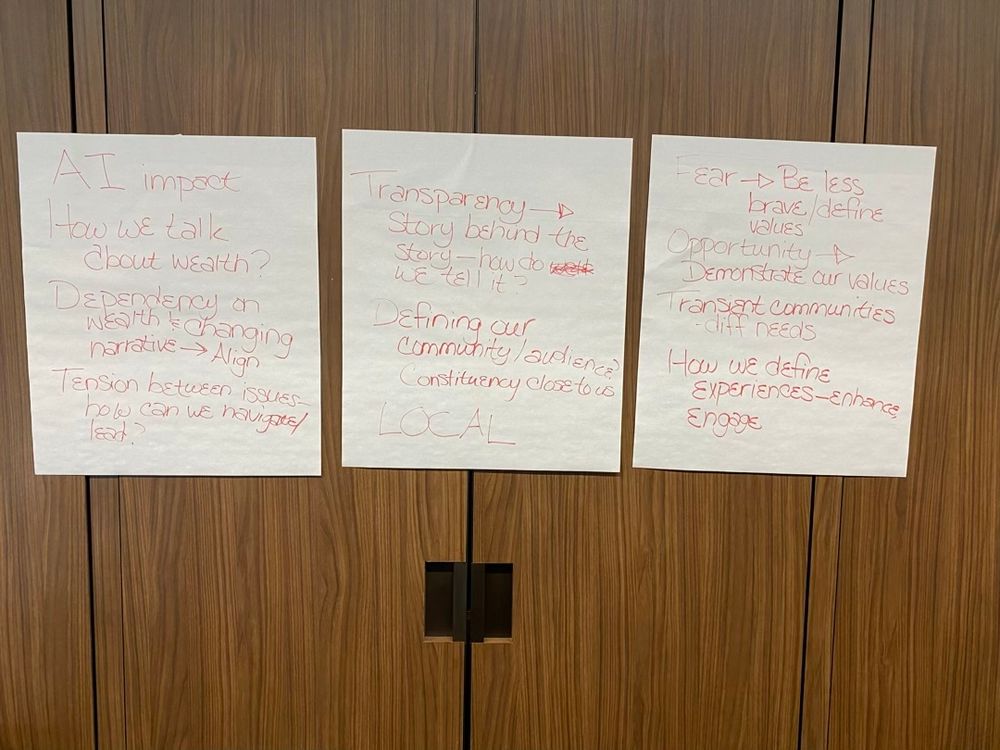 AI impact
How we talk
about wealth?
Dependency on
wealth & changing
narrative → Align
Tension between issues
how can we navigate/
lead?
Transparency →
Story behind the
story - how do
we tell it?
Defining our
community/audience?
Constituency close to us
LOCAL
Fear → Be less
brave/define
values
Opportunity →
Demonstrate our values
Transient communities
- diff needs
How we define
experiences - enhance,
engage